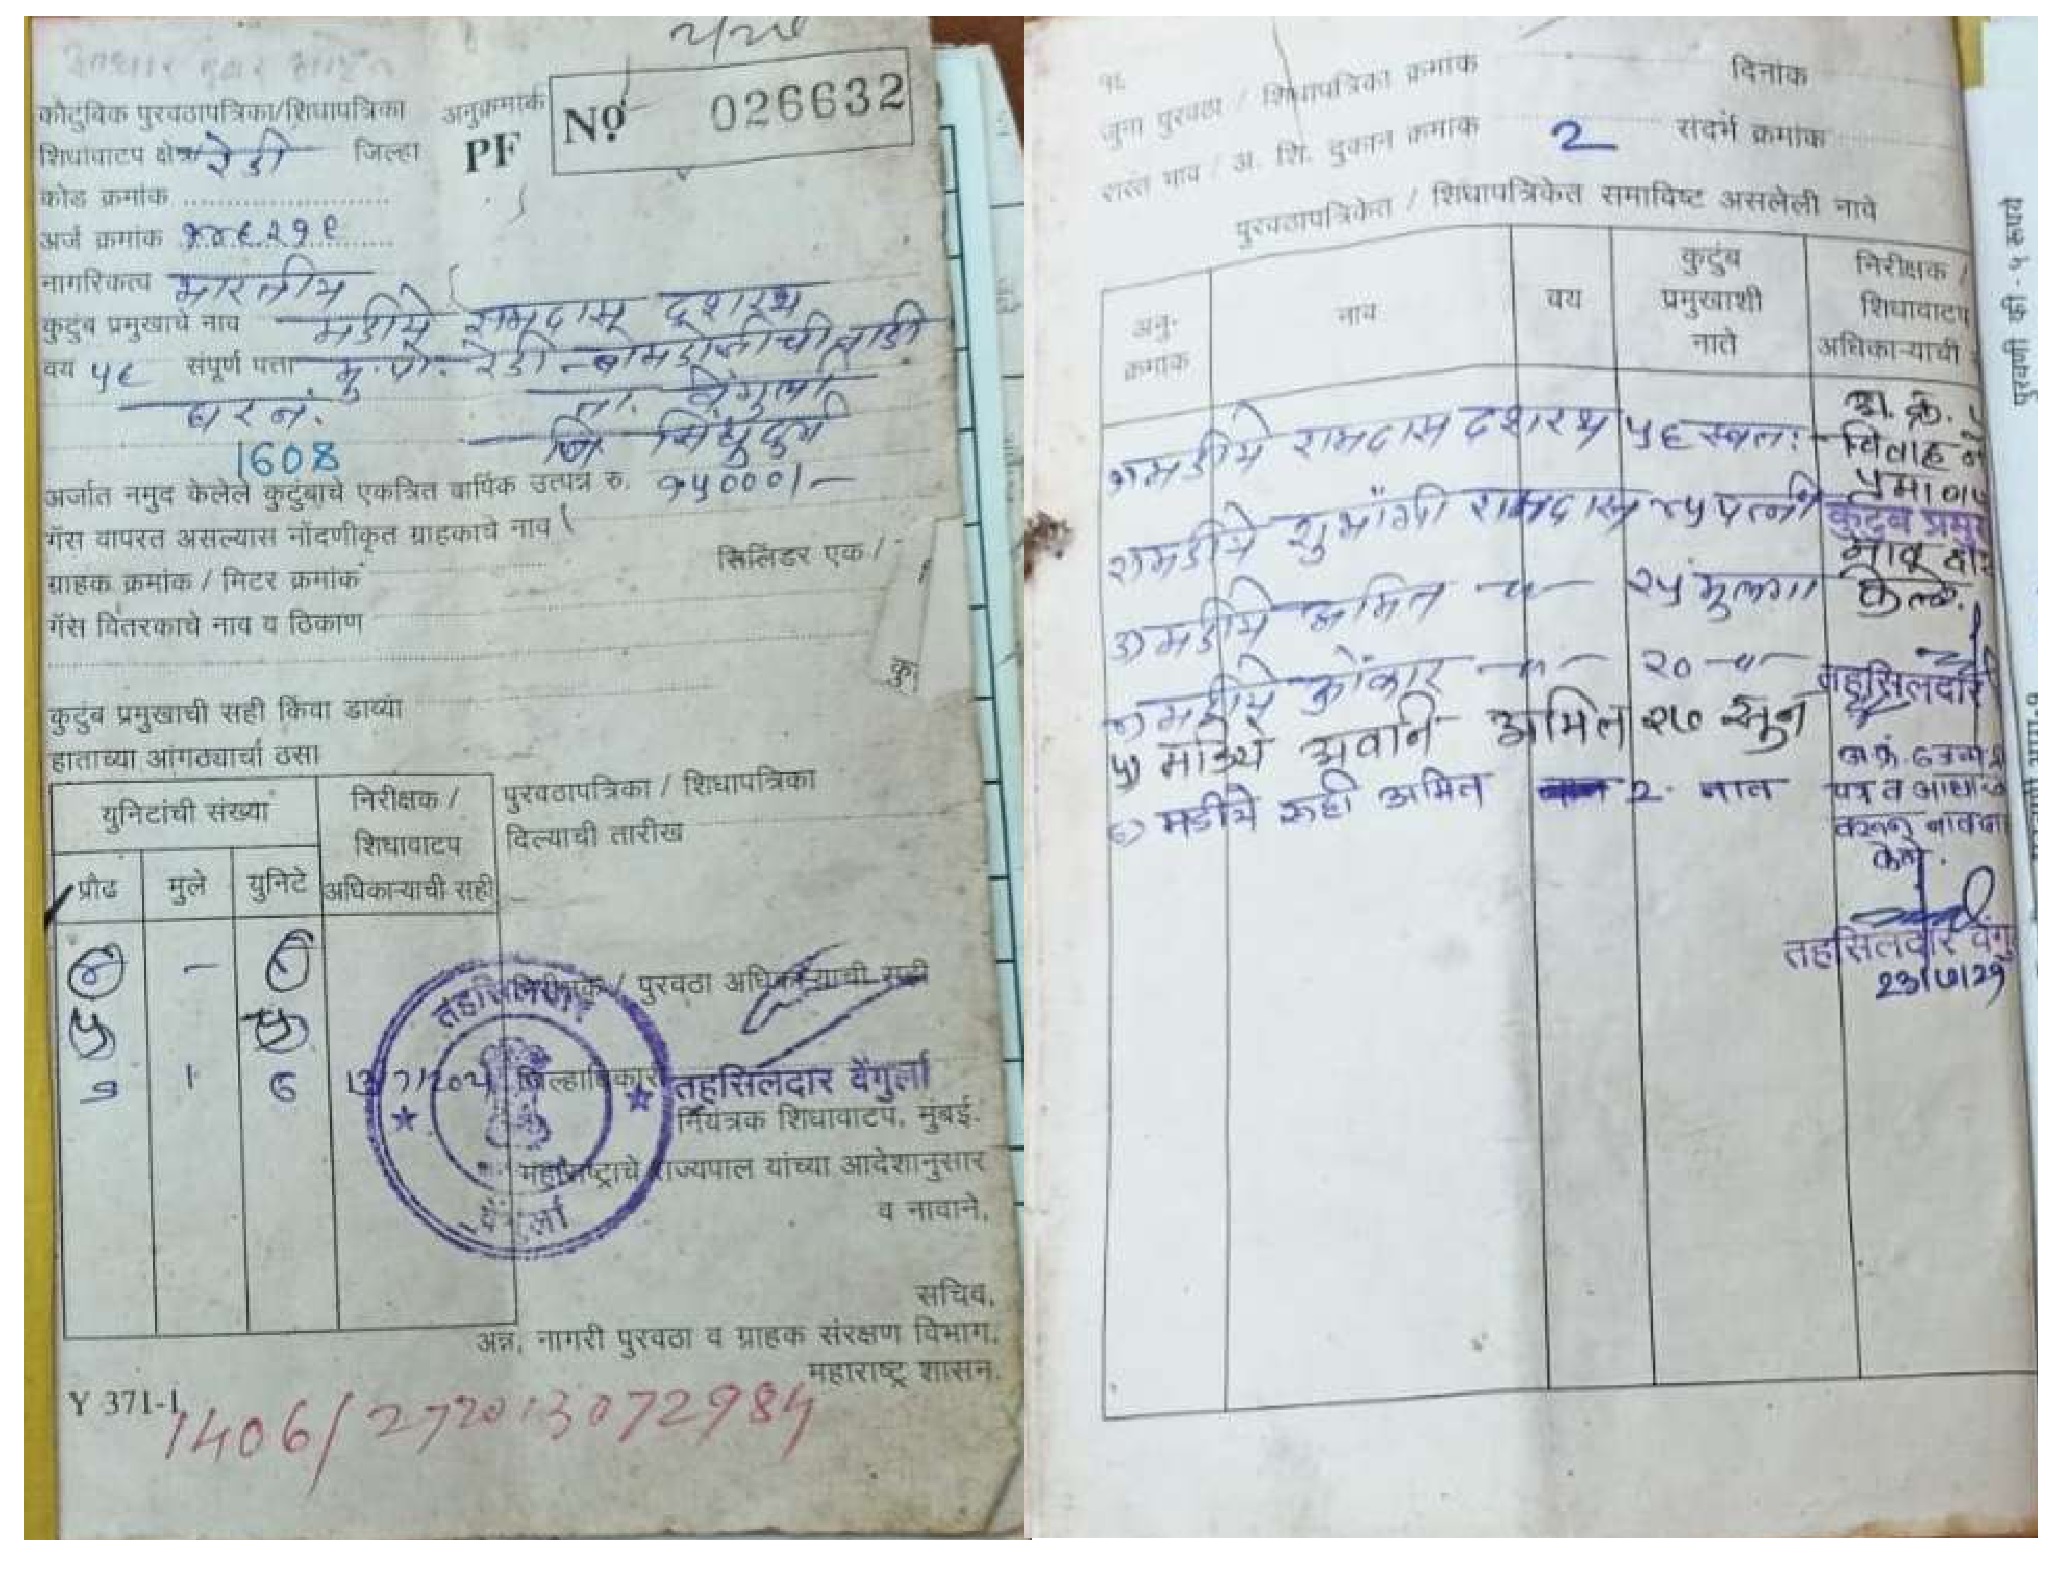 कौटुंबिक पुरवठापत्रिका/शिधापत्रिका अनुक्रमांक
PF No 026632
शिधावाटप क्षेत्र रेडी जिल्हा
कोड क्रमांक
अर्ज क्रमांक
नागरिकत्व भारतीय
कुटुंब प्रमुखाचे नाव मडीये रामदास दशरथ
वय ५६ संपूर्ण पत्ता मु.पो. रेडी -
घर नं. ता. वेंगुर्ला
1608 जि सिंधुदुर्ग
अर्जात नमुद केलेले कुटुंबाचे एकत्रित वार्षिक उत्पन्न रु. १५०००/-
गॅस वापरत असल्यास नोंदणीकृत ग्राहकाचे नाव
सिलिंडर एक /
ग्राहक क्रमांक / मिटर क्रमांक
गॅस वितरकाचे नाव व ठिकाण
कु
कुटुंब प्रमुखाची सही किंवा डाव्या
हाताच्या आंगठ्याचा ठसा
युनिटांची संख्या
निरीक्षक / शिधावाटप अधिकाऱ्याची सही
पुरवठापत्रिका / शिधापत्रिका
दिल्याची तारीख
प्रौढ मुले युनिटे
४ -
५
५ १ ६
निरीक्षक / पुरवठा अधिकाऱ्याची सही
तहसिलदार
जिल्हाधिकारी
तहसिलदार वेंगुर्ला
नियंत्रक शिधावाटप, मुंबई.
महाराष्ट्राचे राज्यपाल यांच्या आदेशानुसार
व नावाने,
वेंगुर्ला
सचिव,
अन्न, नागरी पुरवठा व ग्राहक संरक्षण विभाग,
महाराष्ट्र शासन.
Y 371-1
1406/272013072984
१६
जुना पुरवठा / शिधापत्रिका क्रमांक दिनांक
रास्त भाव / अ. शि. दुकान क्रमांक 2 संदर्भ क्रमांक
पुरवठापत्रिकेत / शिधापत्रिकेत समाविष्ट असलेली नावे
अनु-क्रमांक
नाव
वय
कुटुंब प्रमुखाशी नाते
निरीक्षक / शिधावाटप अधिकाऱ्याची
१) मडीये रामदास दशरथ ५६ स्वतः
२) मडीये शुभांगी रामदास ४५ पत्नी
३) मडीये अमित -"- २५ मुलगा
४) मडीये ओंकार -"- २० -"-
५) मडिये अवनि अमित २७ सून
६) मडीये रुही अमित 2 नात
अ. क्रं. ५
विवाह नों
प्रमाणप
कुटुंब प्रमुख
केले.
तहसिलदार
अ.क्रं. ६ जन्म
केले.
तहसिलदार वेंगु
23/7/21
पुरवणी फी - ५ रूपये